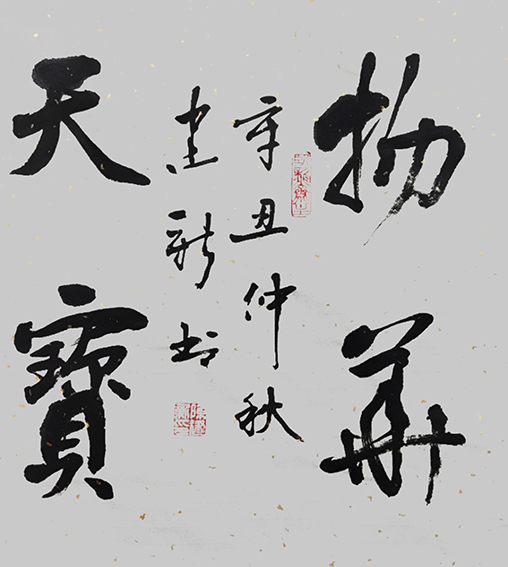 物華
辛丑仲秋
建新书
天寶